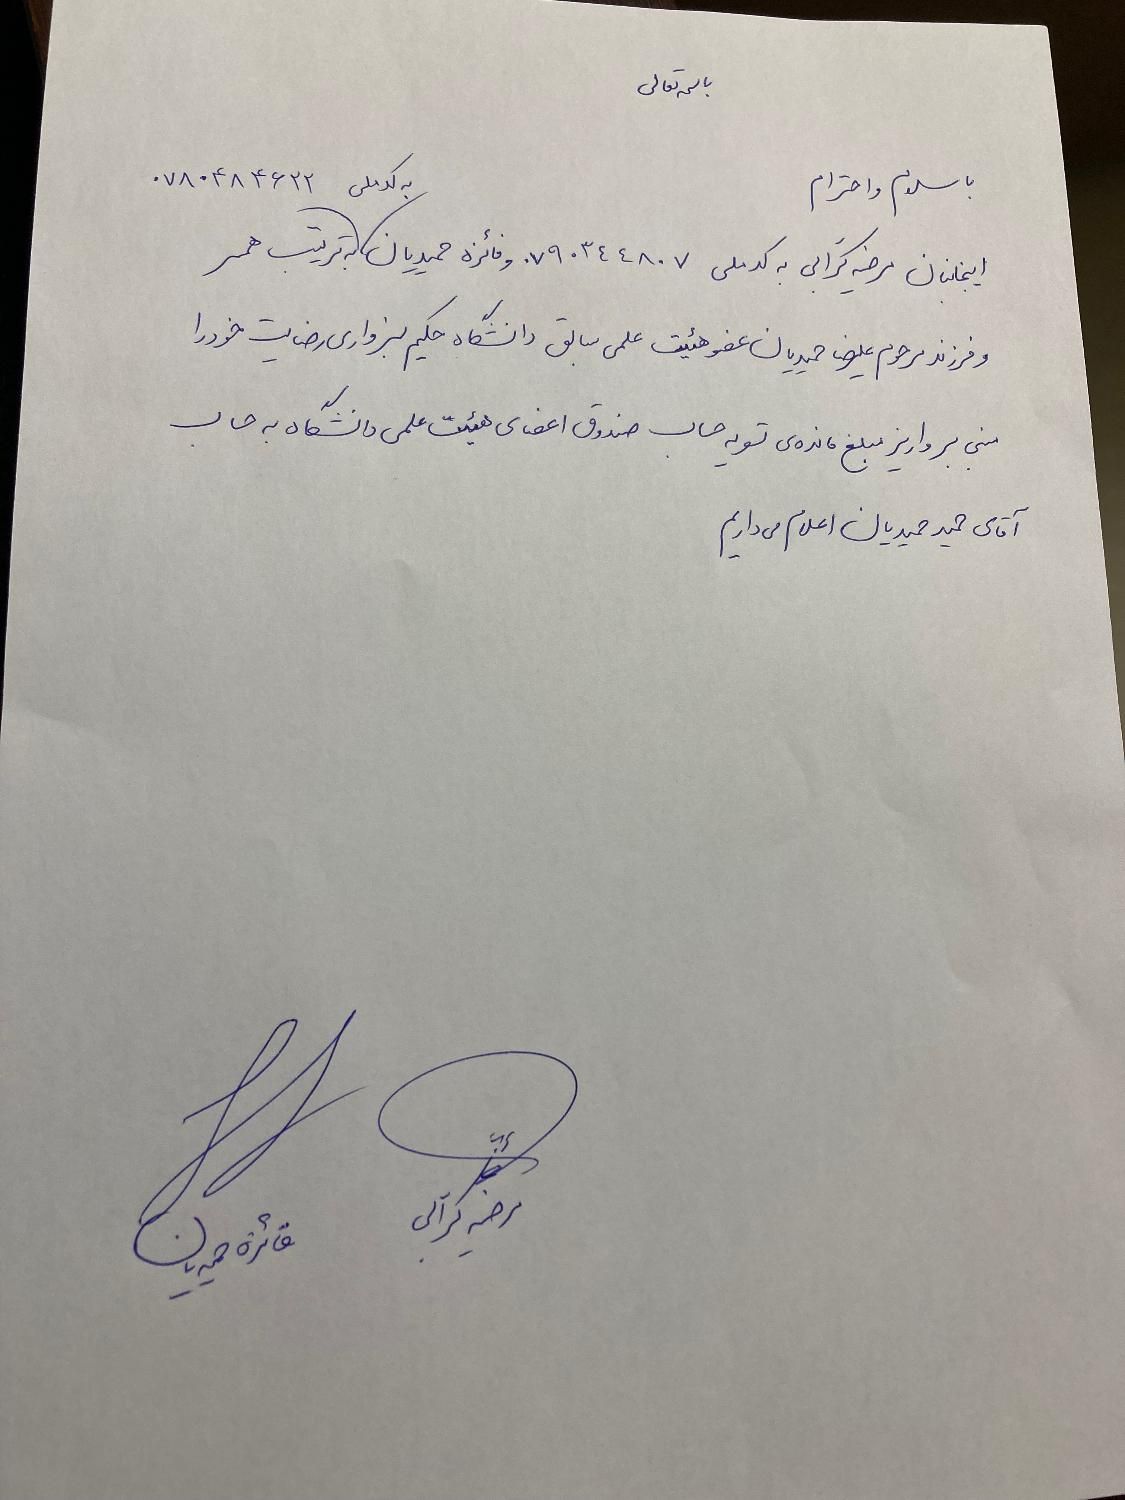 باسمه تعالی
با سلام و احترام
به کد ملی ۰۷۸۰۴۸۴۶۲۲
اینجانبان مرضیه کرآبی به کد ملی ۰۷۹۰۳٤٤۸۰۷ و فائزه حمیدیان به ترتیب همسر
و فرزند مرحوم علیرضا حمیدیان عضو هیئت علمی سابق دانشگاه حکیم سبزواری رضایت خود را
مبنی بر واریز مبلغ مانده‌ی تسویه حساب صندوق اعضای هیئت علمی دانشگاه به حساب
آقای حمید حمیدیان اعلام می‌داریم
مرضیه کرآبی
فائزه حمیدیان